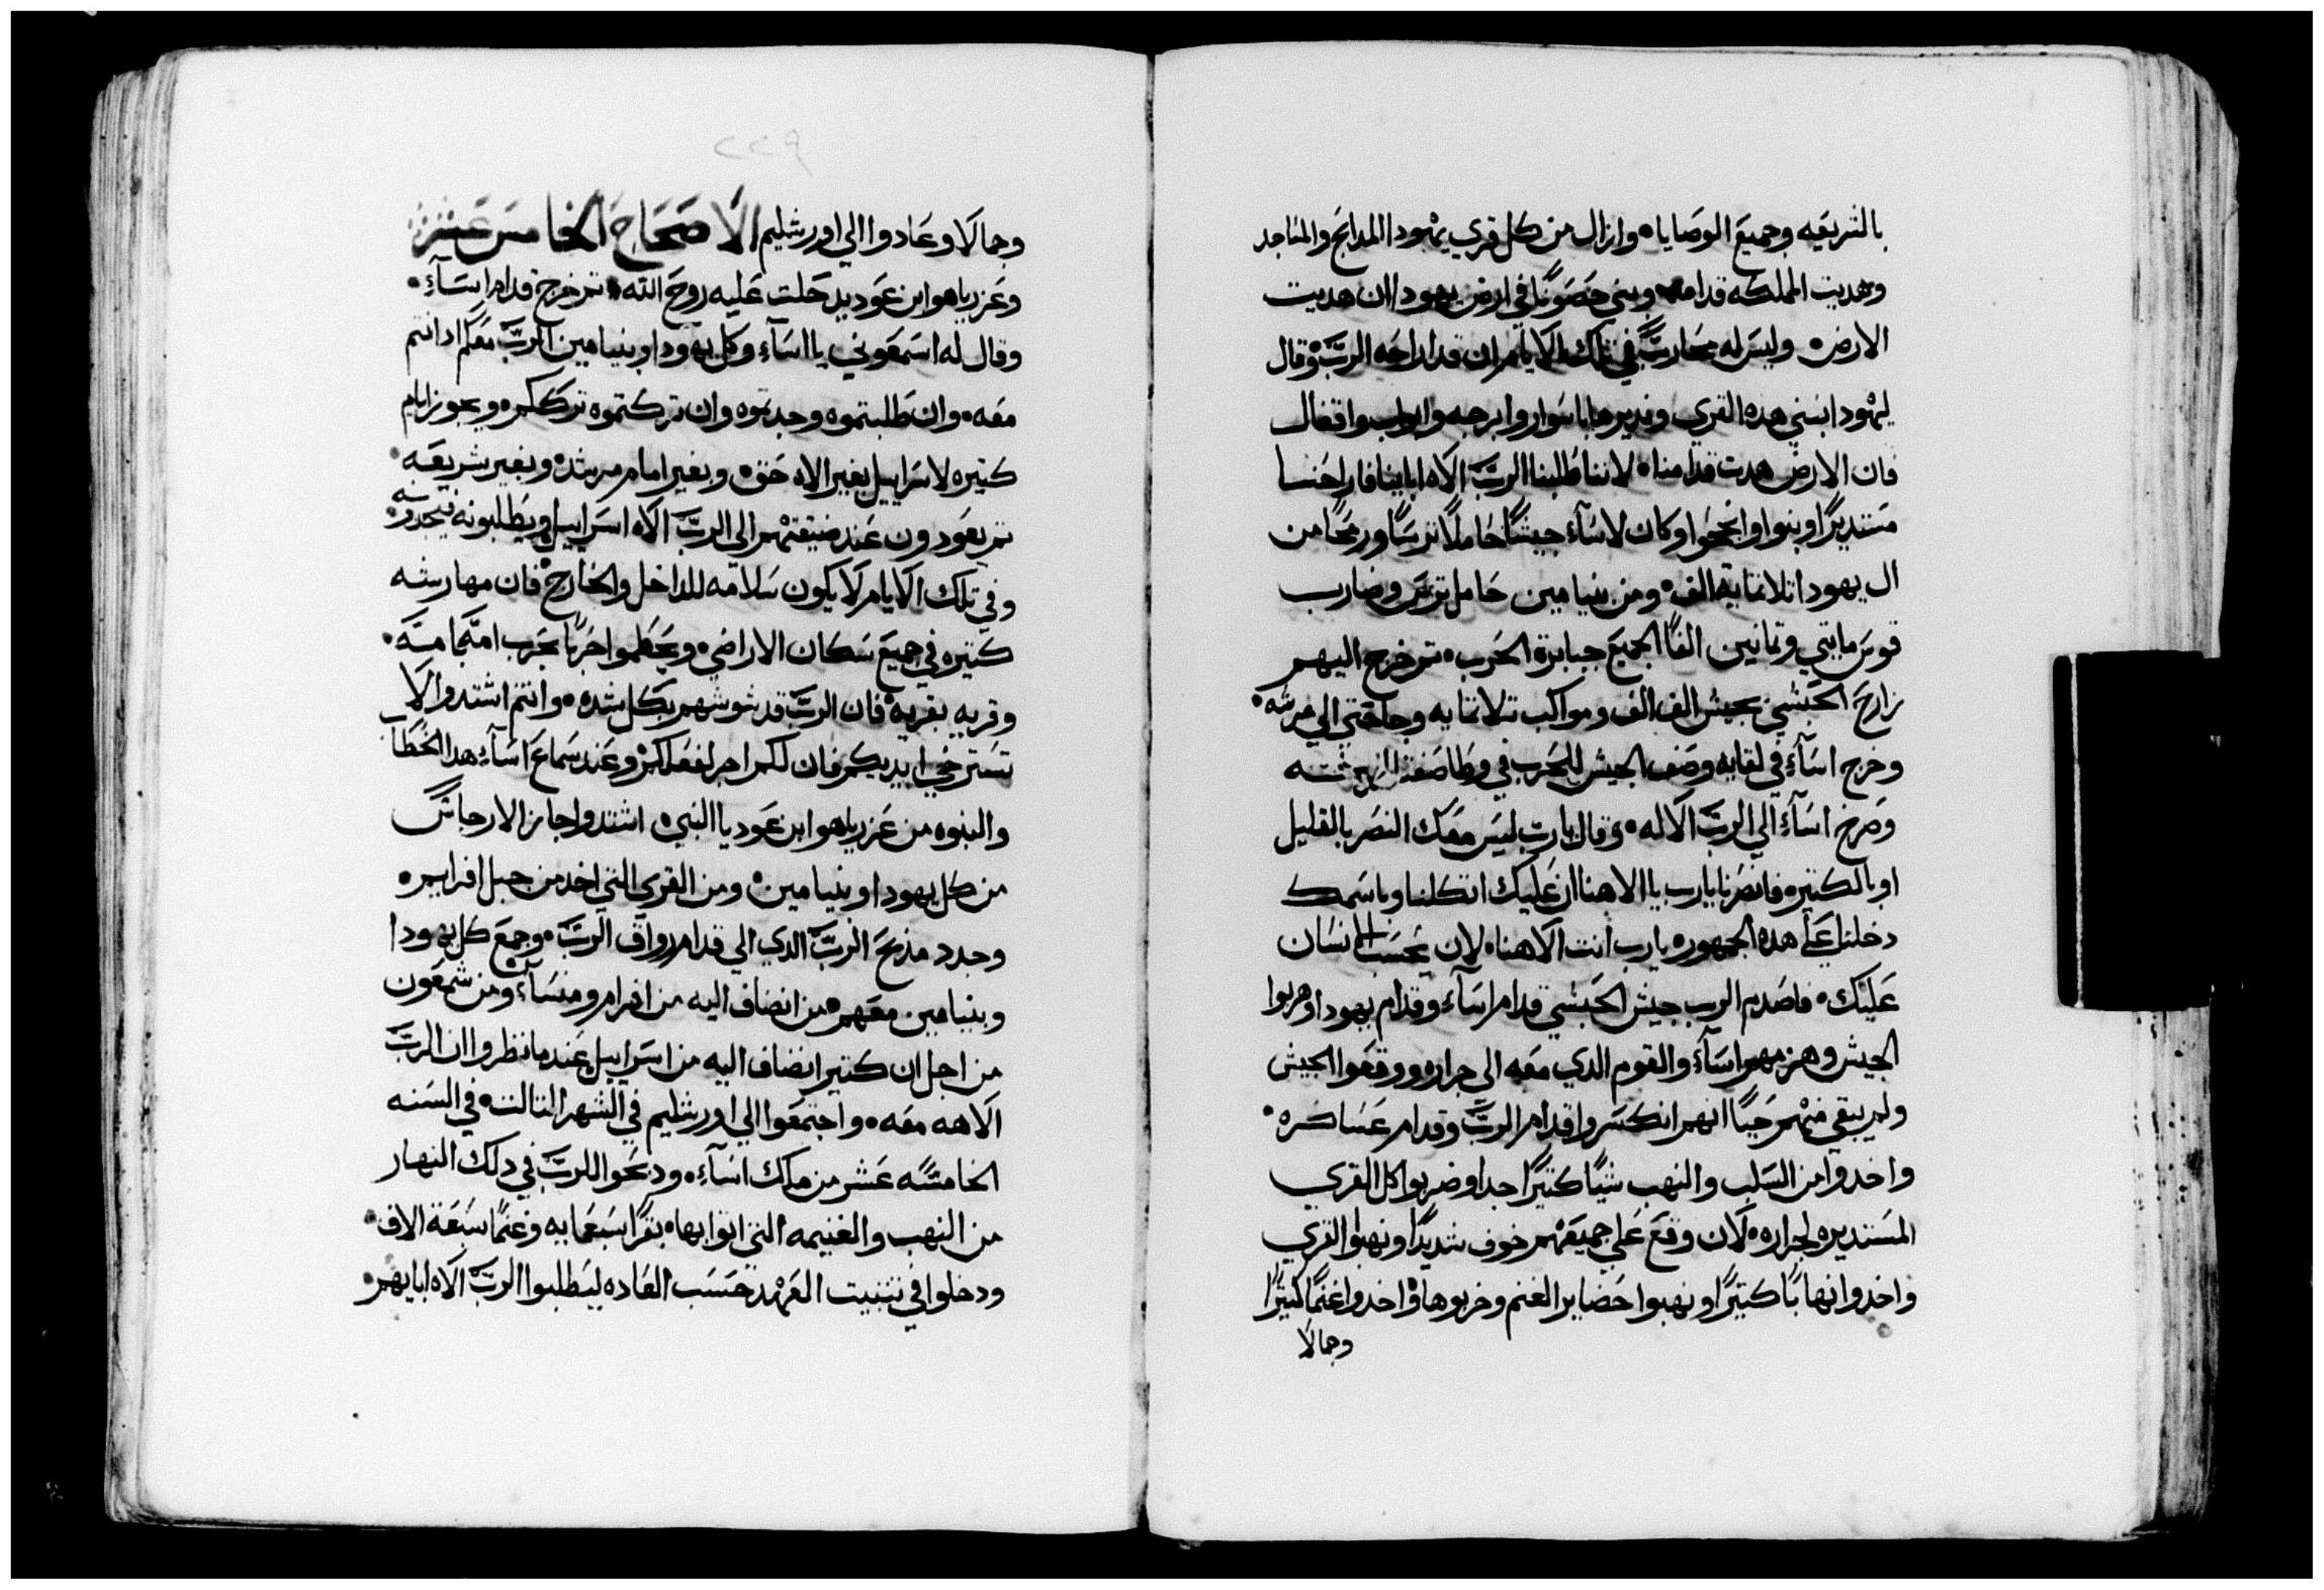 بالشريعه وجميع الوصايا • وازال من كل قري يهودا المدابح والمناجد
وهديت المملكه قدامه وبني حصونًا في ارض يهودا ان هديت
الارض • وليس له محاربٌ في تلك الايام ان قد اراحه الربّ وقال
ليهودا ابنني هده القري ونديرها باسوار وابرجه وابواب واقفال
فان الارض هدت قدامنا • لاننا طلبنا الربّ الاه ابائنا فاراحنا
مستديرًا وبنوا وانجحوا وكان لاساء جيشًا حاملًا ترسًا ورمحًا من
ال يهودا تلاتماية الف • ومن بنيامين حامل ترس وضارب
قوس مايتي وتمانين الفًا الجميع جبابرة الحرب • تم خرج اليهم
زارح الحبشي بجيش الف الف ومواكب تلاتمايه وجا حتي الي مرشه •
وخرج اساء في لقايه وصف الجيش للحرب في وطا صفد
وصرخ اساء الي الربّ الاله • وقال يارب ليس معك النصر بالقليل
او بالكتير • فانصرنا يارب يا الاهنا ان عليك اتكلنا وباسمك
دخلنا علي هده الجمهوره يارب انت الاهنا • لان يحسب انسان
عليك • فاصدم الرب جيش الحبشي قدام اساء وقدام يهودا وهربوا
الجيش وهزمهم اساء والقوم الدي معه الي جراره ووقعوا الجيش
ولم يبقي منهم حيًا انهم انكسروا قدام الربّ وقدام عساكره •
واخدوا من السلب والنهب شيًا كتيرًا جدا وضربوا كل القري
المستديره لجراره • لان وقع علي جميعهم خوف شديدًا ونهبوا القري
واخدوا نهابًا كتيرًا ونهبوا حضاير الغنم وخربوها • واخدوا غنمًا كتيرًا
وجمالا
٢٢٩
وجمالا وعادوا الي اورشليم الاصحاح الخامس عشر
وعزرياهو ابن عوديد حلت عليه روح الله • تم خرج قدام اساء •
وقال له اسمعوني يا اساء وكل يهودا وبنيامين الربّ معكم اد انتم
معه • وان طلبتموه وجدتموه وان تركتموه ترككم • ويجوز ايام
كتيره لاسراييل بغير الاه حق • وبغير امام مرشد • وبغير شريعه •
تم يعودون عند ضيقتهم الي الربّ الاه اسراييل ويطلبونه فيجدونه •
وفي تلك الايام لا يكون سلامه للداخل والخارج • فان مهارشه
كتيره في جميع سكان الاراضي • ويحطموا حربًا بحرب امّه بامّه •
وقريه بقريه • فان الربّ قد شوشهم بكل شده • وانتم اشتدوا لا
تسترخي ايديكم فان لكم اجر لفعلكم • وعند سماع اساء هدا الخطاب
والنبوه من عزرياهو ابن عوديا النبي • اشتد واجاز الارجاس
من كل يهودا وبنيامين • ومن القري التي اخد من جبل افرايم •
وجدد مدبح الربّ الدي الي قدام رواق الربّ • وجمع كل يهودا
وبنيامين معهم من انضاف اليه من افرام ومنساء ومن شمعون
من اجل ان كتير انضاف اليه من اسراييل عندما نظروا ان الربّ
الاهه معه • واجتمعوا الي اورشليم في الشهر التالت • في السنه
الخامسه عشر من ملك اساء • ودبحوا للربّ في دلك النهار
من النهب والغنيمه التي اتوا بها • بقرًا سبعمايه وغنمًا سبعة الاف •
ودخلوا في تتبيت العهد حسب العاده ليطلبوا الربّ الاه ابايهم •